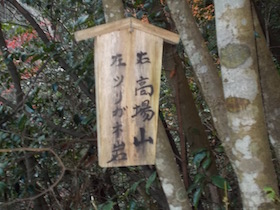 右 高場山
左 ツリガネ岩